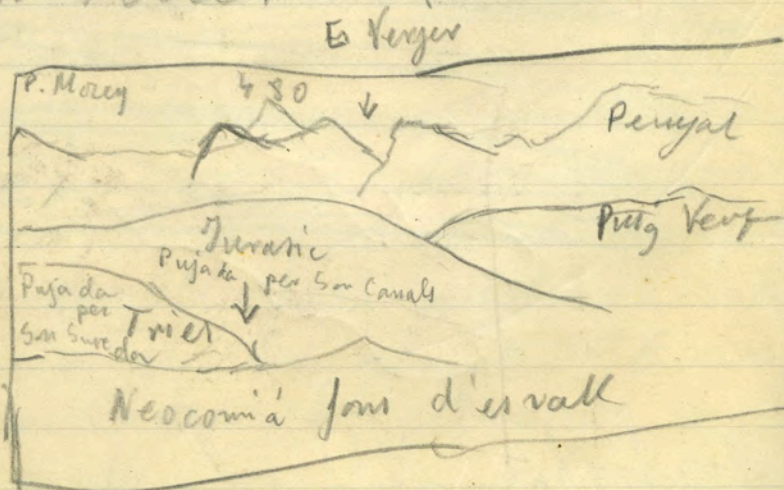 Es Verger
P. Morey
480
Penyal
Puig Verg
Jurasic
Pujada per Son Canals
Pujada
per
Son Sureda
Trias
Neocomiá fons d'es vall